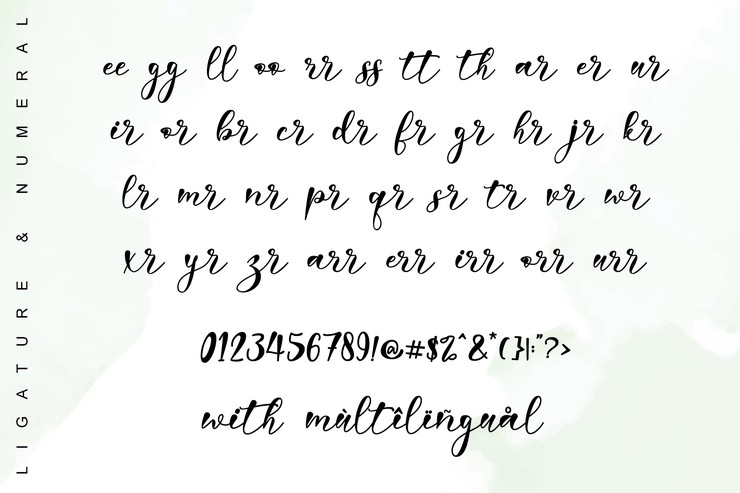 LIGATURE & NUMERAL
ee gg ll oo rr ss tt th ar er ur
ir or br cr dr fr gr hr jr kr
lr mr nr pr qr sr tr vr wr
xr yr zr arr err irr orr urr
0123456789!@#$%^&*(}|:"?>
with mùltîlïñguål